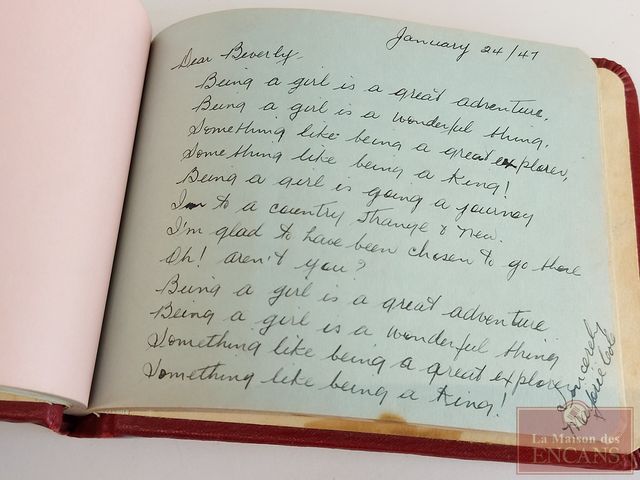 January 24/47
Dear Beverly,
Being a girl is a great adventure,
Being a girl is a wonderful thing,
Something like being a great explorer,
Something like being a King!
Being a girl is going a journey
In to a country strange & new.
I'm glad to have been chosen to go there
Oh! aren't you?
Being a girl is a great adventure
Being a girl is a wonderful thing
Something like being a great explorer
Something like being a King!
Sincerely
Marjorie Cole
La Maison des
ENCANS